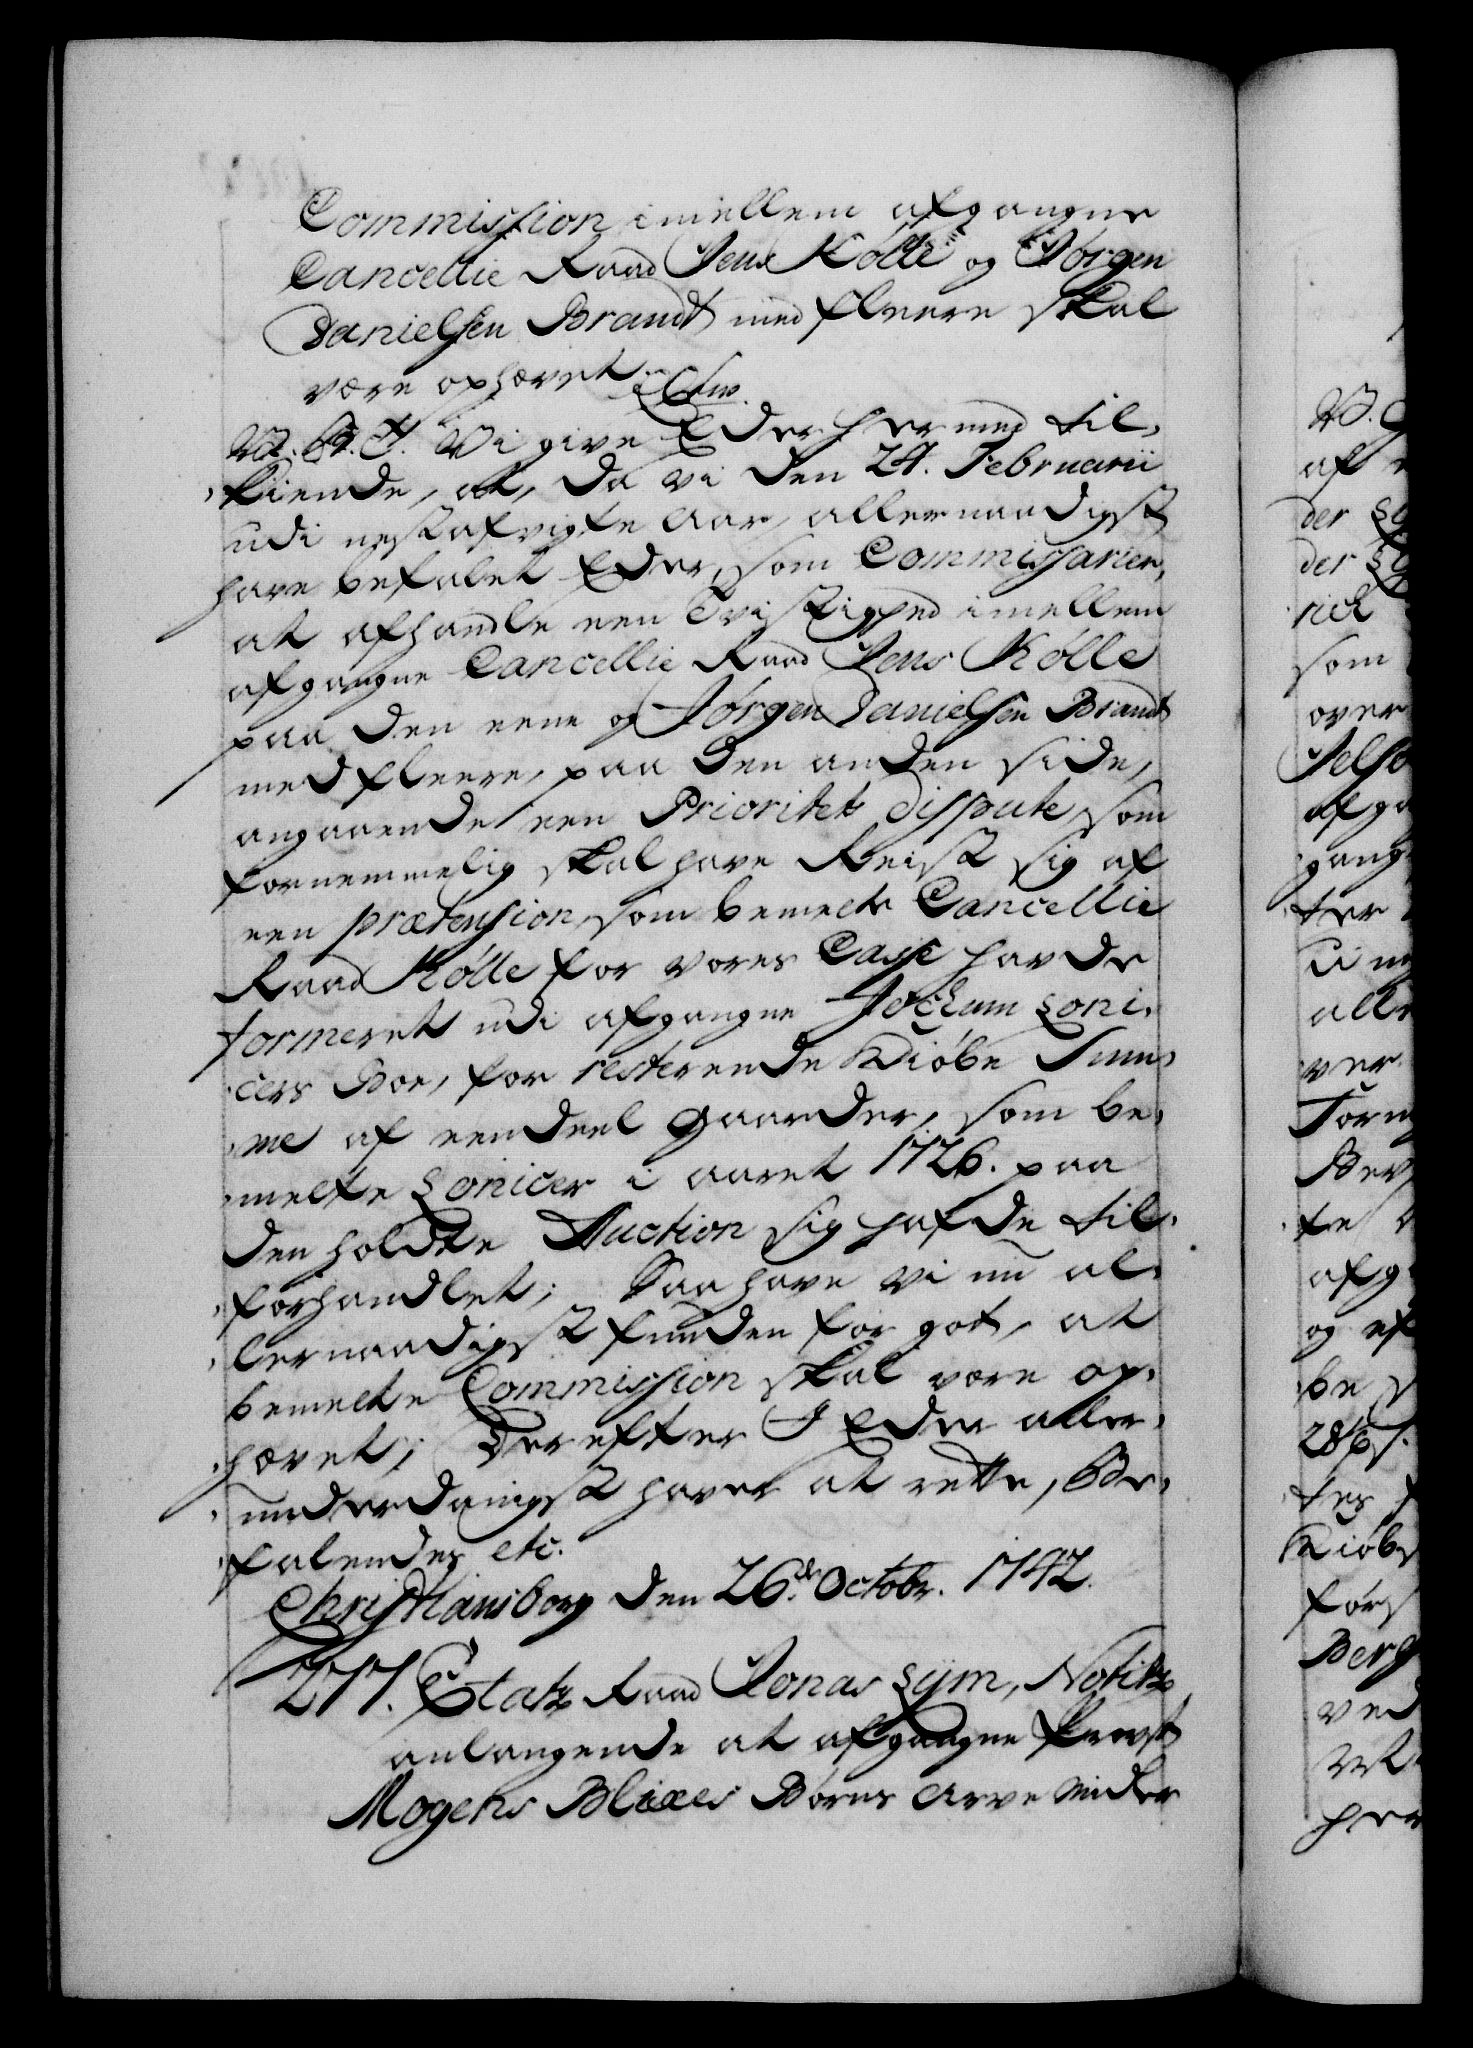 Commission imellem afgangne
Cancellie Raad Jens Kølle og Jørgen
Danielsen Brandt med fleere skal
være ophævet.
V. G. T. Vi give Eder hermed til-
kiende, at, da vi den 24. Februarii
udi nestafvigte Aar, allernaadigst
have befalet Eder, som Commissarier,
at afhandle een Tvistighed imellem
afgangne Cancellie Raad Jens Kølle
paa den eene og Jørgen Danielsen Brandt
med fleere, paa den anden side,
angaaende een Prioritets Dispute, som
fornemmelig skal have Reist sig af
een prætension, som bemelte Cancellie
Raad Kølle for vores Casse havde
formeret udi afgangne Jochum Loni-
cers Boe, for resterende Kiøbe Sum-
me af eendeel Gaarder, som be-
melte Lonicer i aaret 1726. paa
den holdte Auction sig hafde til-
forhandlet; Saa have vi nu al-
lernaadigst funden for got, at
bemelte Commission skal være op-
hævet; Derefter I Eder aller-
underdanigst haver at rette, Be-
falendes etc.
Christiansborg den 26. Octobr. 1742.
277. Etats Raad Jonas Lÿm, Notits
anlangende at afgangne Provst
Mogens Blixes Børns Arve Midler
W.
af
der
der
rick
som
over
afga
gang
ter
alle
ver
Form
Bev
te
afg
og ef
be
tes
Kiøb
før
Berg
ved
her